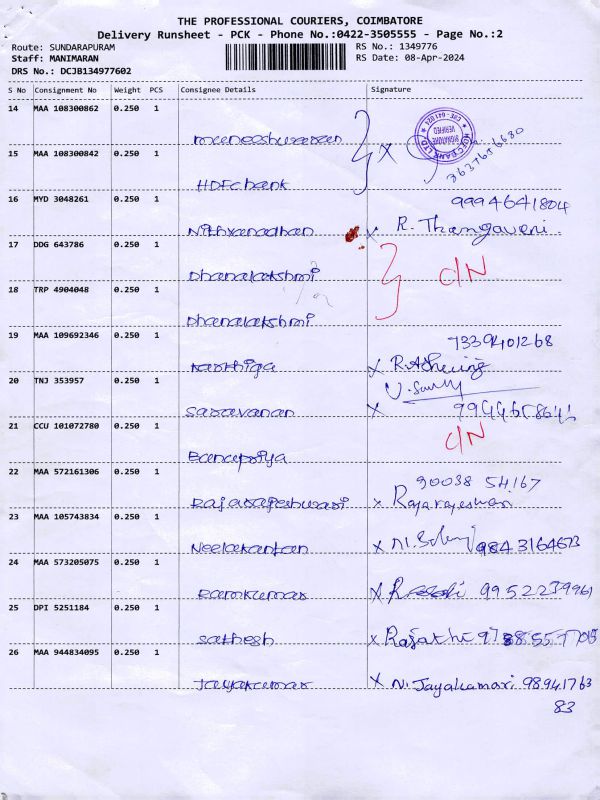 THE PROFESSIONAL COURIERS, COIMBATORE
Delivery Runsheet - PCK - Phone No.:0422-3505555 - Page No.:2
Route: SUNDARAPURAM
RS No.: 1349776
Staff: MANIMARAN
RS Date: 08-Apr-2024
DRS No.: DCJB134977602
S No Consignment No Weight PCS Consignee Details Signature
14 MAA 108300862 0.250 1
maneeshwaran x
HDFC BANK LTD SIGNATURE VERIFIED CBE-641 024
15 MAA 108300842 0.250 1
HDFC bank
16 MYD 3048261 0.250 1 9994641804
Nithyanadhan x R. Thangaveni.
17 DDG 643786 0.250 1
Dhanalakshmi C/N
18 TRP 4904048 0.250 1
Dhanalakshmi
19 MAA 109692346 0.250 1 7339401268
karthiga x
20 TNJ 353957 0.250 1
saravanan x
21 CCU 101072780 0.250 1 C/N
22 MAA 572161306 0.250 1 90038 54167
Rajarajeshwari x Rajarajeswari
23 MAA 105743834 0.250 1
Neelakantan x 9843164673
24 MAA 573205075 0.250 1
Ramkumar x 9952239961
25 DPI 5251184 0.250 1
sathesh x Rajathi
26 MAA 944834095 0.250 1
Jayakumar x N. Jayakumari 98941763
83